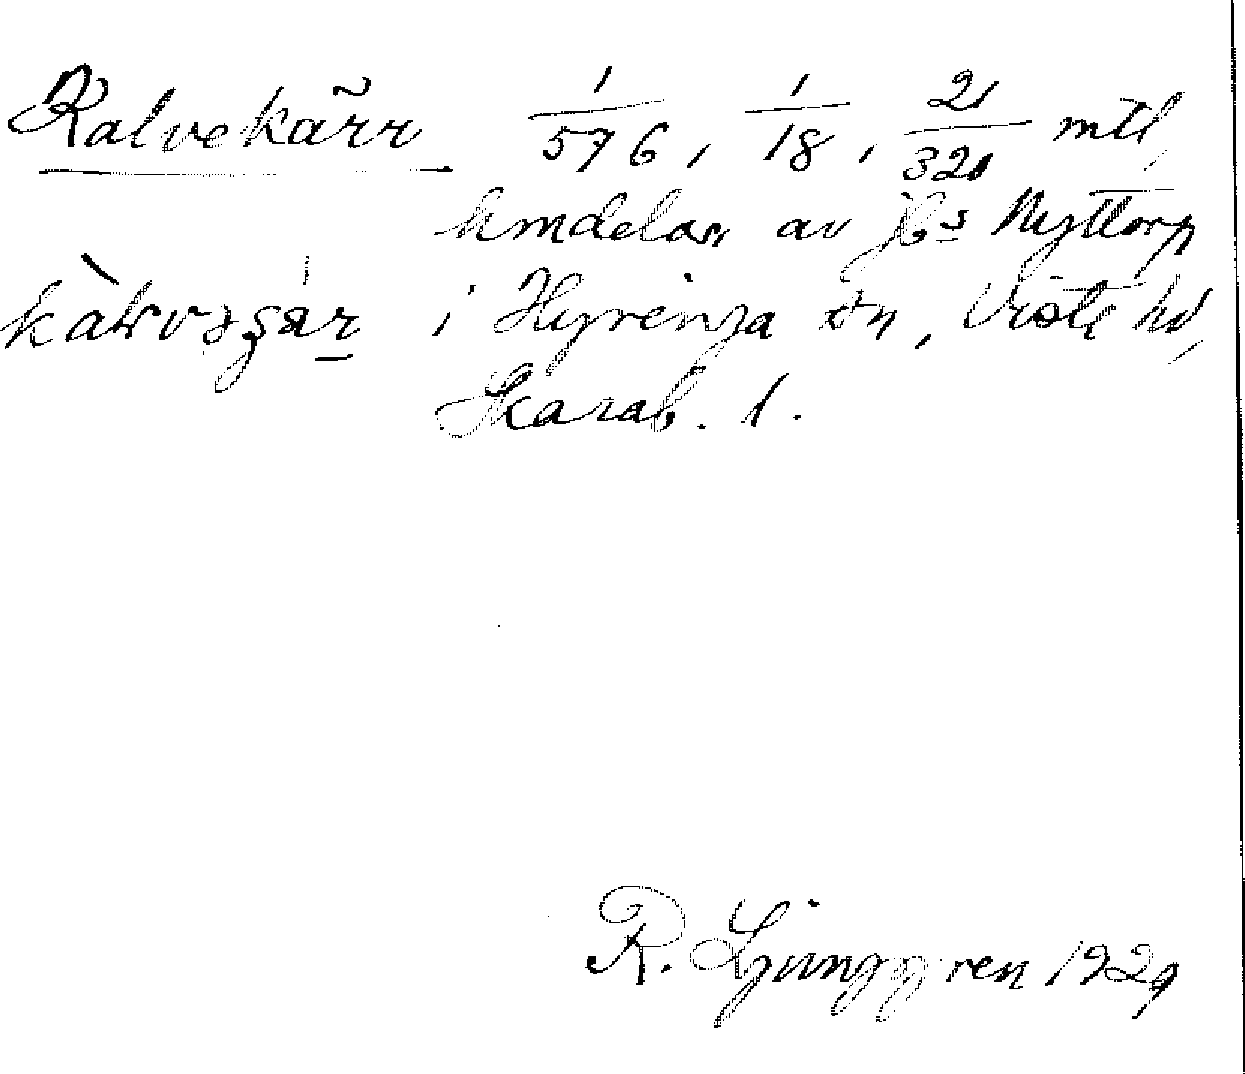 Kalvekärr 1/576, 1/18, 21/320 mtl,
hmdelar av Hs Nyttorp
i Hyringa sn, Viste hd,
Skarab. l.
R. Ljunggren 1929